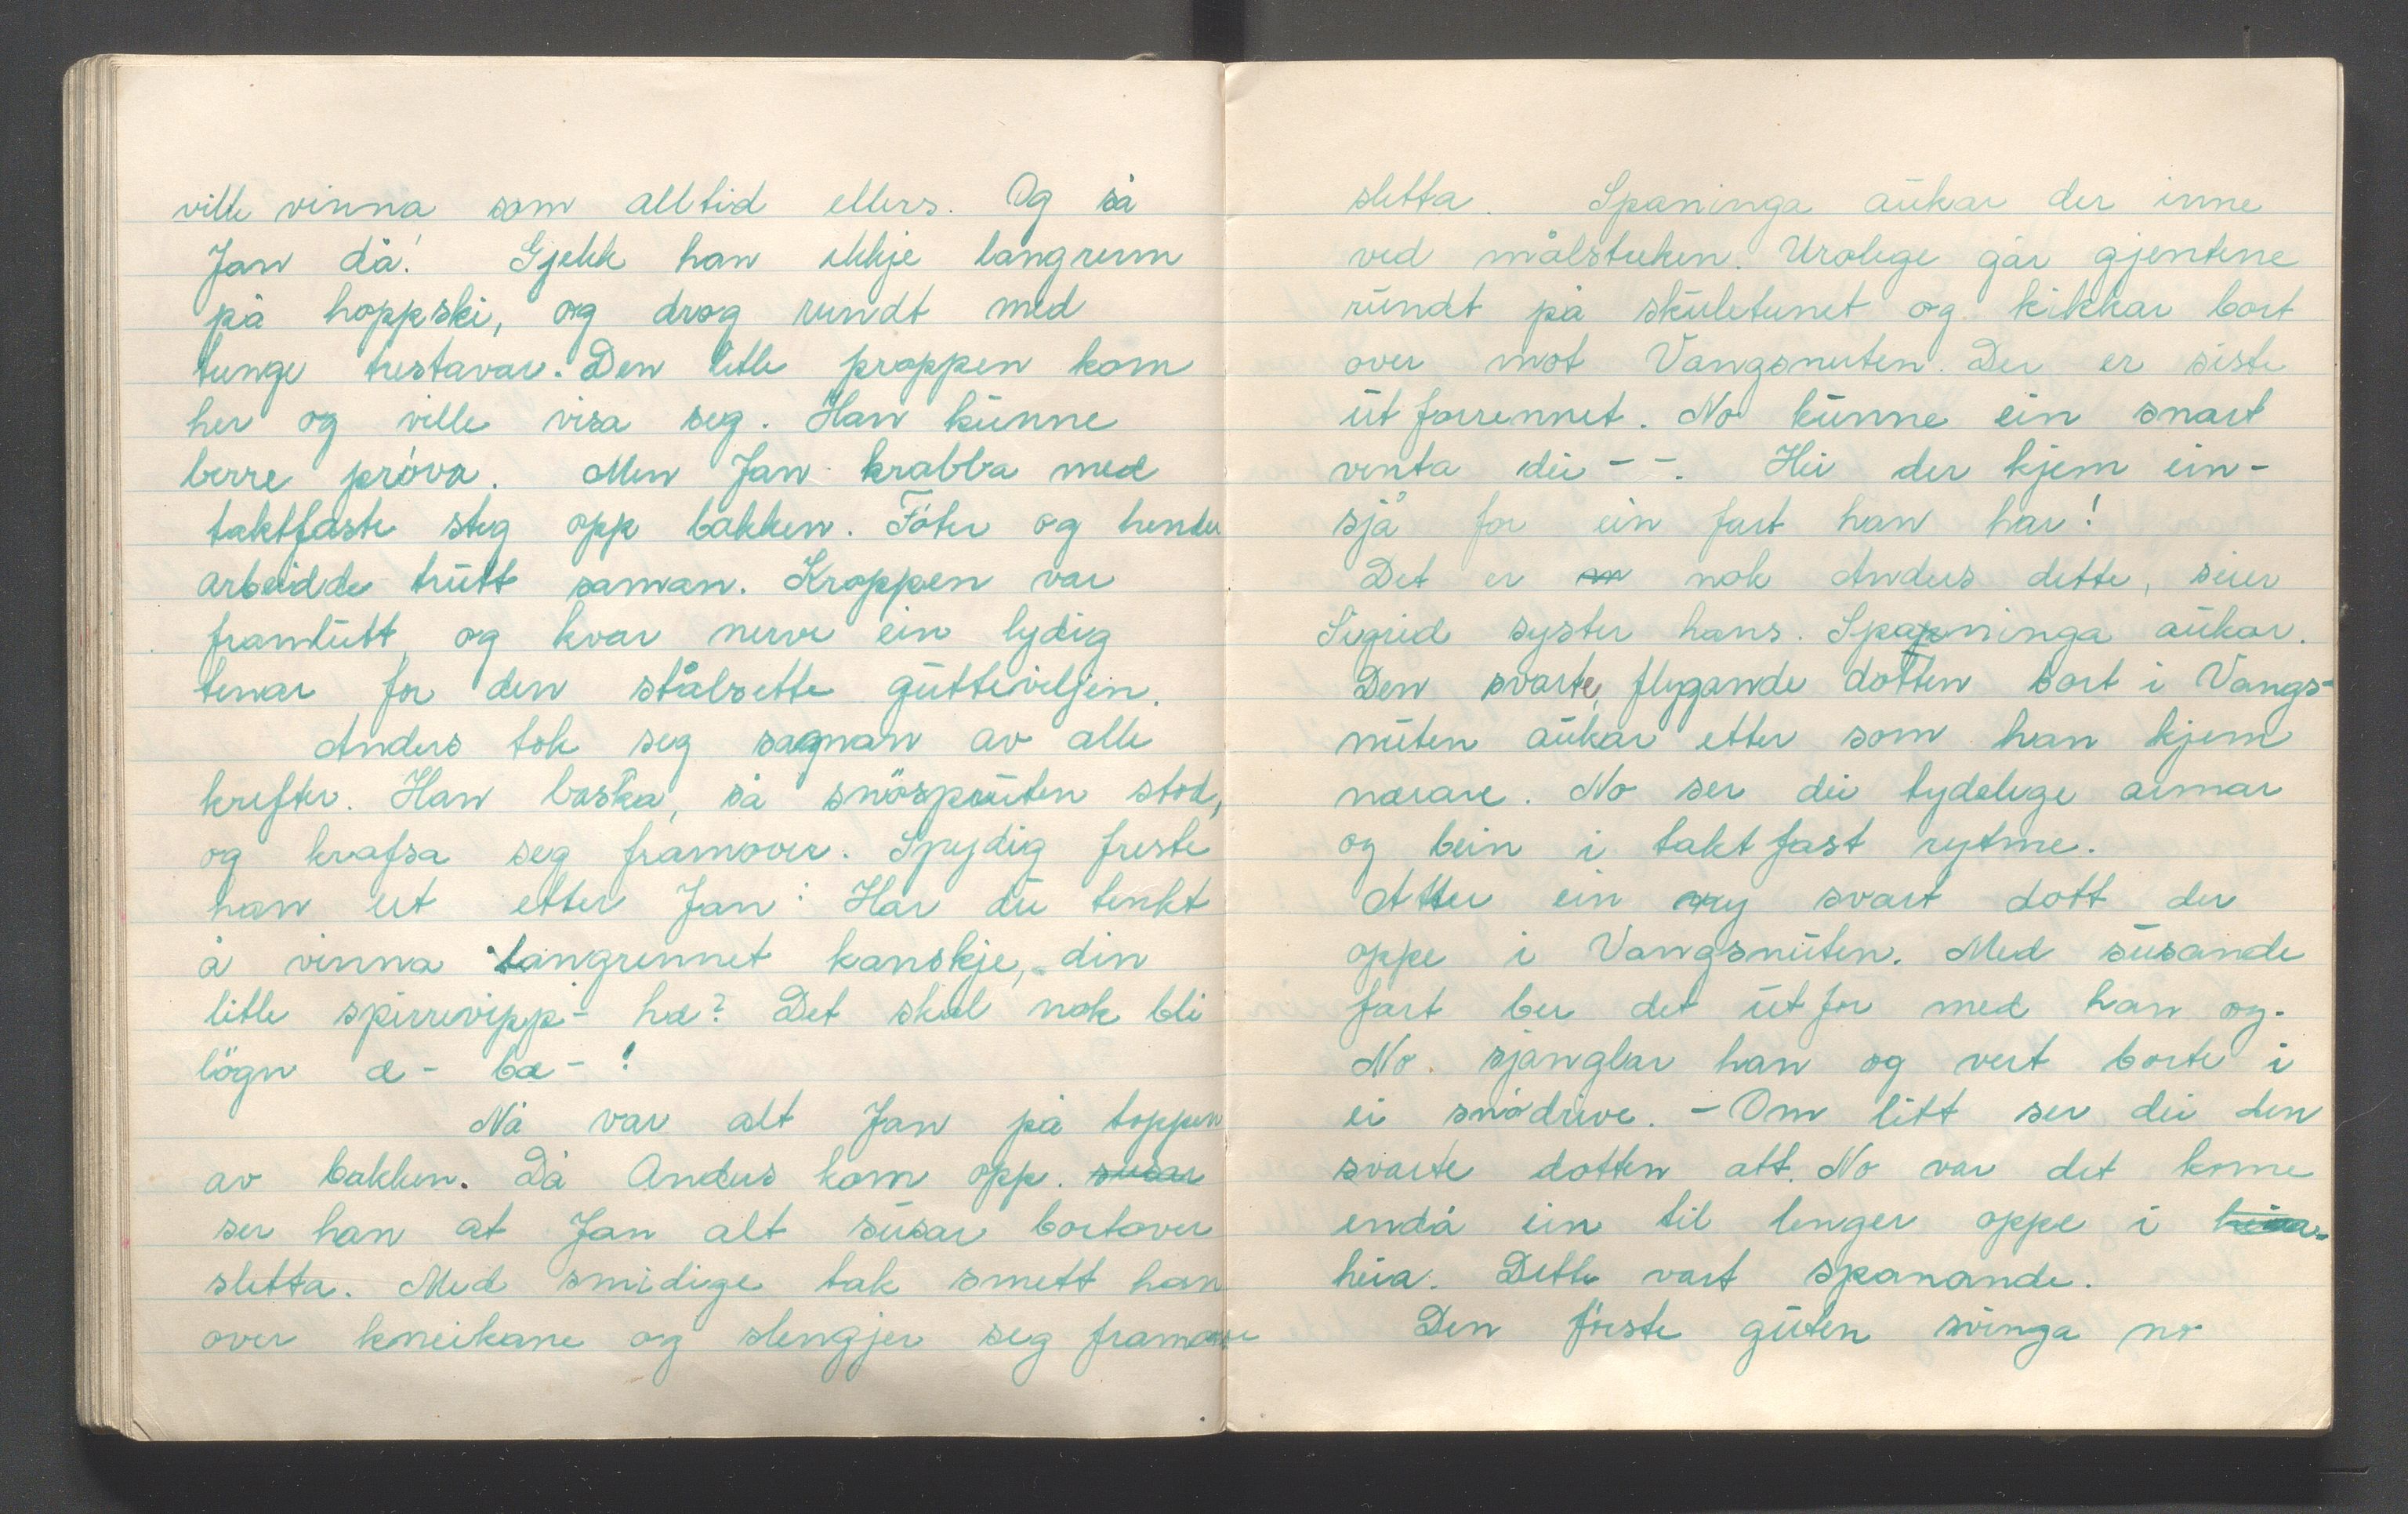 ville vinna som alltid ellers. Og så
Jan då! Gjekk han ikkje langrenn
på hoppski, og drog rundt med
tunge trestavar. Den litle proppen kom
her og ville visa seg. Han kunne
berre pröva. Men Jan krabba med
taktfaste steg opp bakken. Föter og hender
arbeidde trutt saman. Kroppen var
framlutt, og kvar nerve ein lydig
tenar for den stålsette gutteviljen.
Anders tok seg sagnan av alle
krefter. Han baska, så snöspruten stod,
og krafsa seg framover. Spydig freste
han ut etter Jan: Har du tenkt
å vinna langrennet kanskje, din
litle spirrevipp - hæ? Det skal nok bli
lögn æ - bæ - !
Nå var alt Jan på toppen
av bakken. Då Anders kom opp. susar
ser han at Jan alt susar bortover
sletta. Med smidige tak smett han
over kneikane og slengjer seg framover
sletta. Spaninga aukar der inne
ved målstreken. Urolege går gjentene
rundt på skuletunet og kikkar bort
over mot Vangsnuten. Der er siste
utforrennet. No kunne ein snart
venta dei - -. Hei der kjem ein -
sjå for ein fart han har!
Det er nok Anders dette, seier
Sigrid syster hans. Spaninga aukar.
Den svarte, flygande dotten bort i Vangs-
nuten aukar etter som han kjem
nærare. No ser dei tydelege armar
og bein i taktfast rytme.
Atter ein ny svart dott der
oppe i Vangsnuten. Med susande
fart ber det utfor med han og.
No sjanglar han og vert borte i
ei snödrive. - Om litt ser dei den
svarte dotten att. No var det kome
endå ein til lenger oppe i heia-
heia. Dette vart spanande.
Den förste guten svinga no